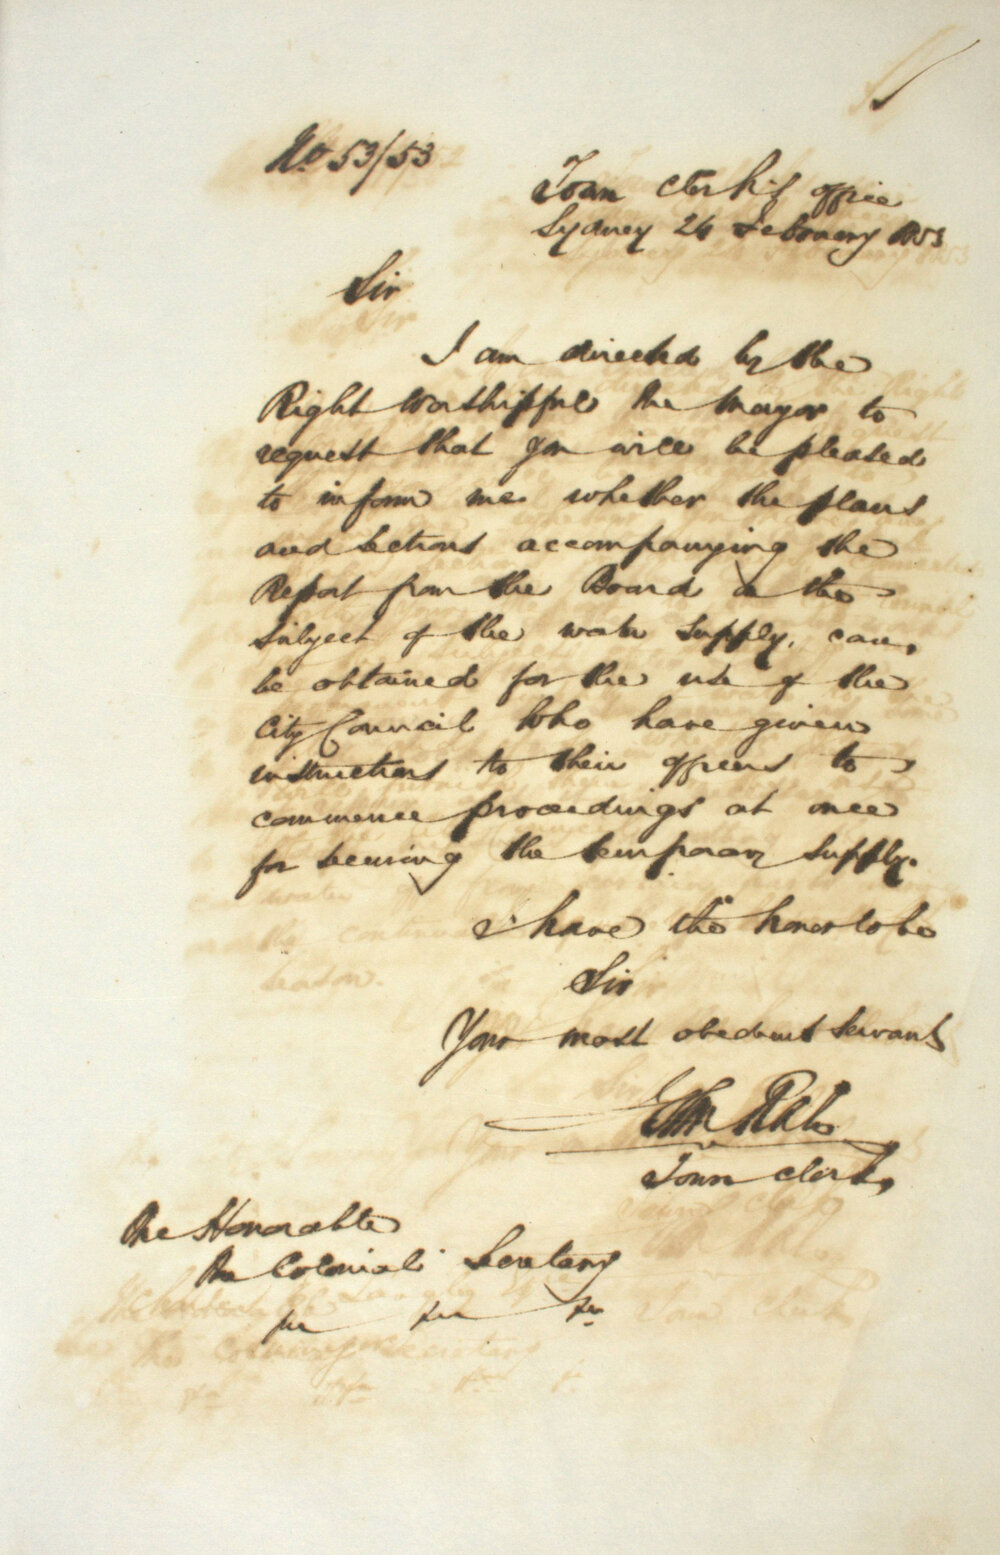 No 53/53
Town Clerk's Office
Sydney 24 February 1853
Sir
I am directed by the
Right Worshipful the Mayor to
request that you will be pleased
to inform me whether the plans
and sections accompanying the
Report from the Board on the
subject of the water supply, can,
be obtained for the use of the
City Council who have given
instructions to their officers to
commence proceedings at once
for securing the temporary supply.
I have the honor to be
Sir
Your most obedient servant
Town Clerk,
The Honorable
The Colonial Secretary